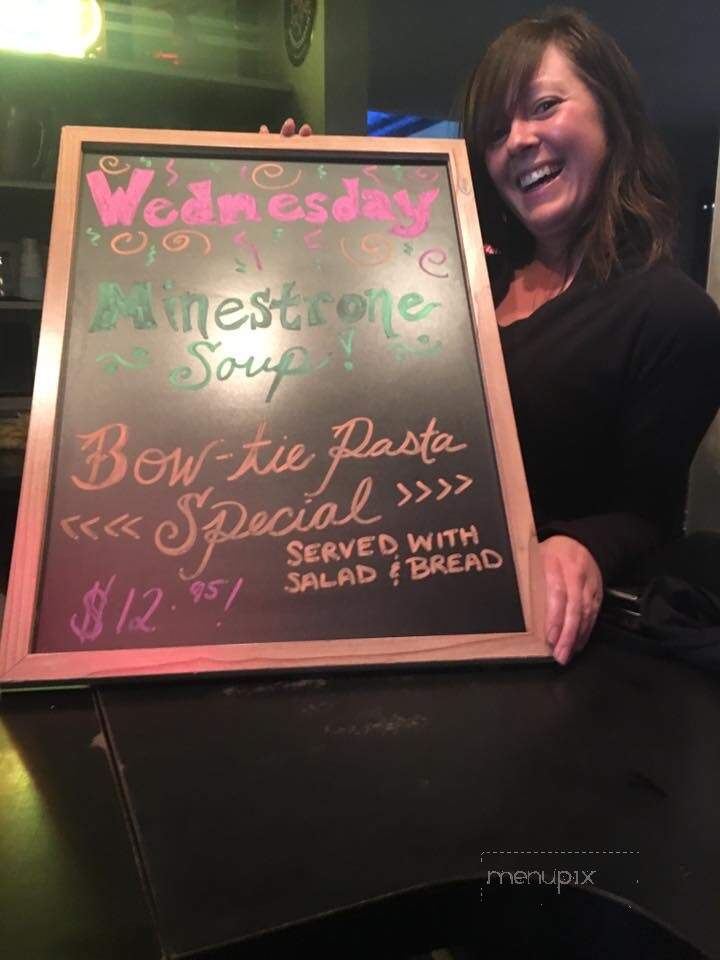 Wednesday
Minestrone
Soup!
Bow-tie Pasta
<<<< Special >>>>
SERVED WITH
SALAD & BREAD
$12.95!
menupix